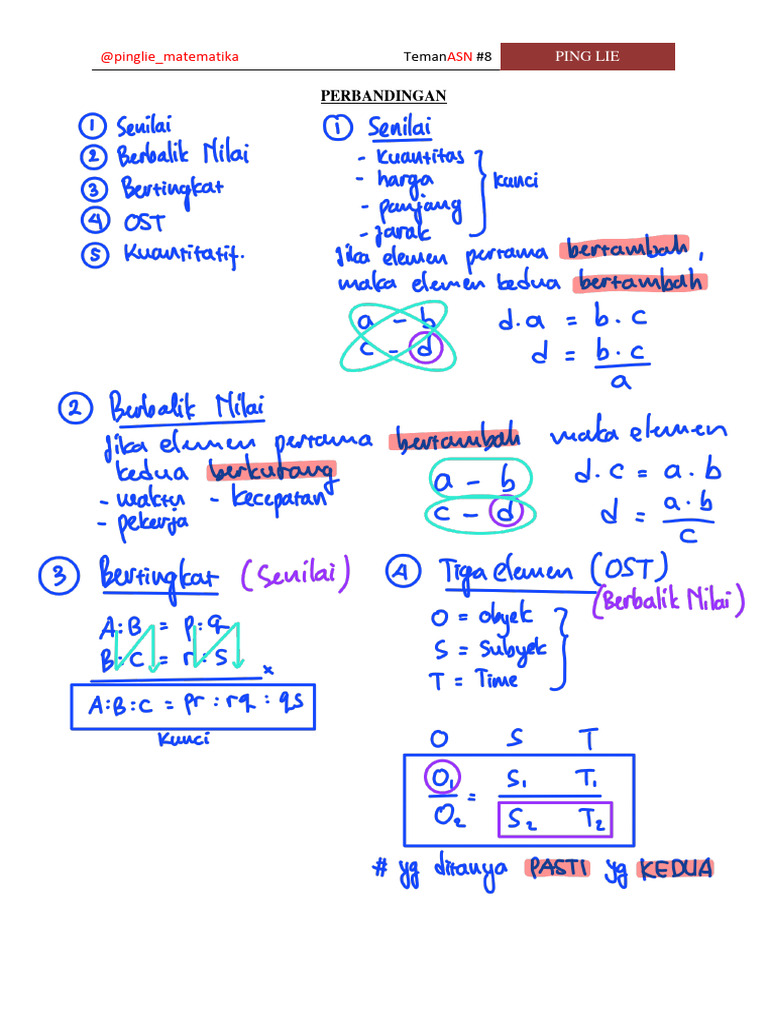 @pinglie_matematika TemanASN #8 PING LIE
PERBANDINGAN
① Senilai
② Berbalik Nilai
③ Bertingkat
④ OST
⑤ Kuantitatif.
① Senilai
- Kuantitas
- harga
- panjang
- Jarak
Kunci
Jika elemen pertama bertambah,
maka elemen kedua bertambah
a - b
c - d
d.a = b.c
d = b.c
a
② Berbalik Nilai
Jika elemen pertama bertambah maka elemen
kedua berkurang
- waktu - kecepatan
- pekerja
a - b
c - d
d.c = a.b
d = a.b
c
③ Bertingkat (Senilai)
A:B = p:q
B:C = r:s
x
A:B:C = pr : rq : qs
Kunci
④ Tiga elemen (OST)
(Berbalik Nilai)
O = obyek
S = Subyek
T = Time
O S T
O₁ = S₁ T₁
O₂ S₂ T₂
# yg ditanya PASTI yg KEDUA